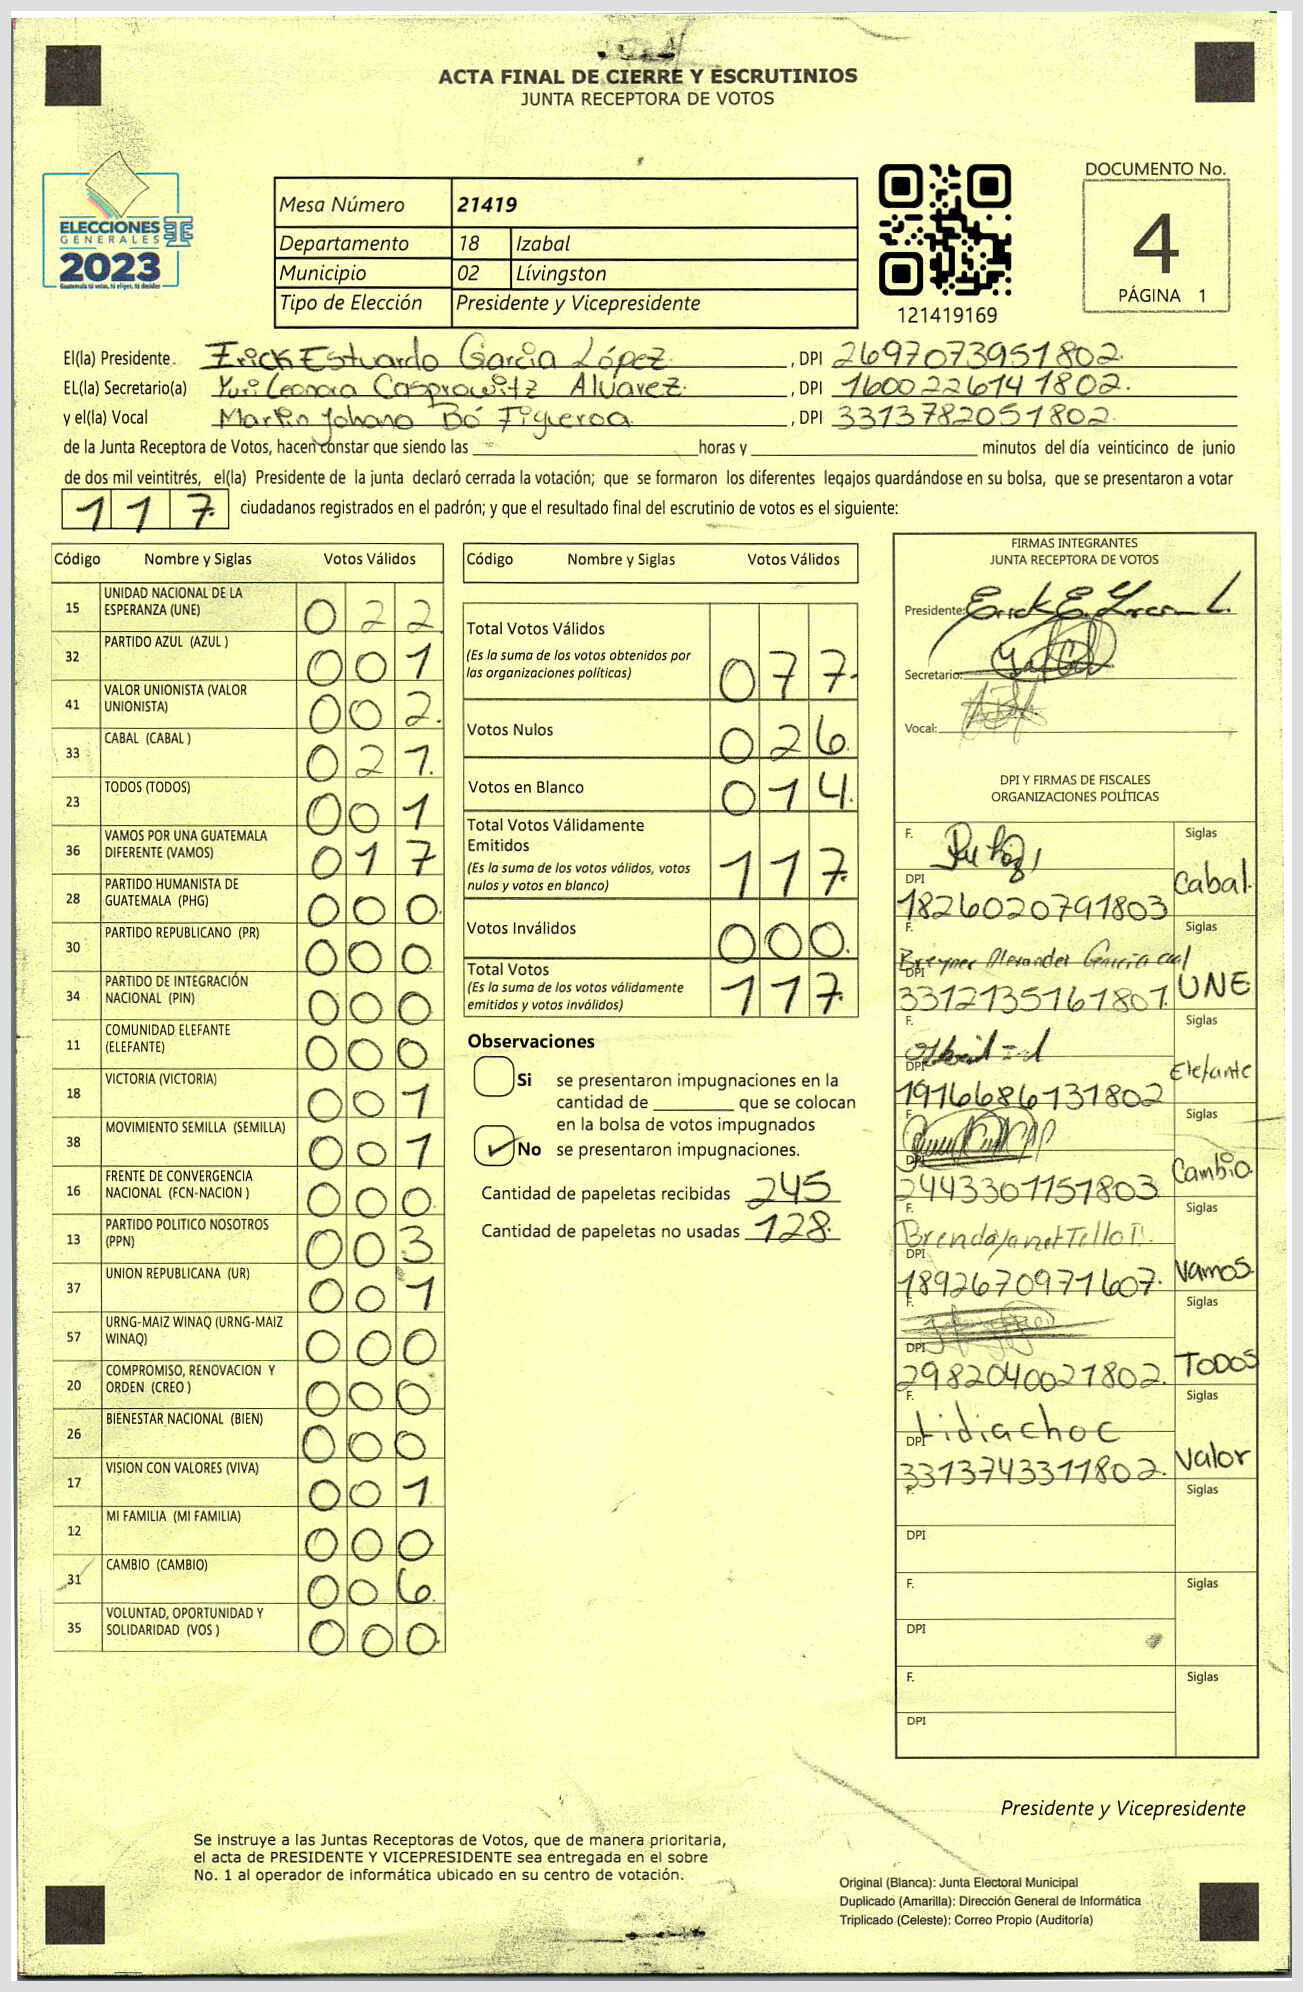 ACTA FINAL DE CIERRE Y ESCRUTINIOS
JUNTA RECEPTORA DE VOTOS
ELECCIONES
GENERALES
2023
Guatemala tú votas, tú eliges, tú decides
Mesa Número 21419
Departamento 18 Izabal
Municipio 02 Lívingston
Tipo de Elección Presidente y Vicepresidente
121419169
DOCUMENTO No.
4
PÁGINA 1
El(la) Presidente. Erick Estuardo Garcia López , DPI 2697073951802.
EL(la) Secretario(a) Yuri Leonora Casprowitz Alvarez. , DPI 1600226141802.
y el(la) Vocal Martin Johano Bó Figueroa. , DPI 3313782051802.
de la Junta Receptora de Votos, hacen constar que siendo las horas y minutos del día veinticinco de junio
de dos mil veintitrés, el(la) Presidente de la junta declaró cerrada la votación; que se formaron los diferentes legajos guardándose en su bolsa, que se presentaron a votar
117. ciudadanos registrados en el padrón; y que el resultado final del escrutinio de votos es el siguiente:
Código Nombre y Siglas Votos Válidos
15 UNIDAD NACIONAL DE LA ESPERANZA (UNE) 022
32 PARTIDO AZUL (AZUL ) 001
41 VALOR UNIONISTA (VALOR UNIONISTA) 002.
33 CABAL (CABAL ) 021.
23 TODOS (TODOS) 001
36 VAMOS POR UNA GUATEMALA DIFERENTE (VAMOS) 017
28 PARTIDO HUMANISTA DE GUATEMALA (PHG) 000.
30 PARTIDO REPUBLICANO (PR) 000.
34 PARTIDO DE INTEGRACIÓN NACIONAL (PIN) 000
11 COMUNIDAD ELEFANTE (ELEFANTE) 000
18 VICTORIA (VICTORIA) 001
38 MOVIMIENTO SEMILLA (SEMILLA) 001
16 FRENTE DE CONVERGENCIA NACIONAL (FCN-NACION ) 000.
13 PARTIDO POLITICO NOSOTROS (PPN) 003
37 UNION REPUBLICANA (UR) 001
57 URNG-MAIZ WINAQ (URNG-MAIZ WINAQ) 000
20 COMPROMISO, RENOVACION Y ORDEN (CREO ) 000
26 BIENESTAR NACIONAL (BIEN) 000
17 VISION CON VALORES (VIVA) 001
12 MI FAMILIA (MI FAMILIA) 000
31 CAMBIO (CAMBIO) 006.
35 VOLUNTAD, OPORTUNIDAD Y SOLIDARIDAD (VOS ) 000.
Código Nombre y Siglas Votos Válidos
Total Votos Válidos
(Es la suma de los votos obtenidos por
las organizaciones politicas) 077.
Votos Nulos 026.
Votos en Blanco 014.
Total Votos Válidamente
Emitidos
(Es la suma de los votos válidos, votos
nulos y votos en blanco) 117.
Votos Inválidos 000.
Total Votos
(Es la suma de los votos válidamente
emitidos y votos inválidos) 117.
Observaciones
Si se presentaron impugnaciones en la
cantidad de ________ que se colocan
en la bolsa de votos impugnados
No se presentaron impugnaciones.
Cantidad de papeletas recibidas 245
Cantidad de papeletas no usadas 128.
FIRMAS INTEGRANTES
JUNTA RECEPTORA DE VOTOS
Presidente:
Secretario:
Vocal:
DPI Y FIRMAS DE FISCALES
ORGANIZACIONES POLÍTICAS
F. Siglas
DPI Cabal.
1826020791803
F. Breyner Alexander Garcia Siglas
DPI UNE
3312135161801.
F. Siglas
DPI Elefante
1916686131802
F. Siglas
DPI Cambio.
2443301151803
F. Brenda Janet Tello Siglas
DPI Vamos.
1892670971607.
F. Siglas
DPI TODOS
2982040021802.
F. Lidia choc Siglas
DPI Valor
3313743311802.
F. Siglas
DPI
F. Siglas
DPI
F. Siglas
DPI
Presidente y Vicepresidente
Se instruye a las Juntas Receptoras de Votos, que de manera prioritaria,
el acta de PRESIDENTE Y VICEPRESIDENTE sea entregada en el sobre
No. 1 al operador de informática ubicado en su centro de votación.
Original (Blanca): Junta Electoral Municipal
Duplicado (Amarilla): Dirección General de Informática
Triplicado (Celeste): Correo Propio (Auditoría)